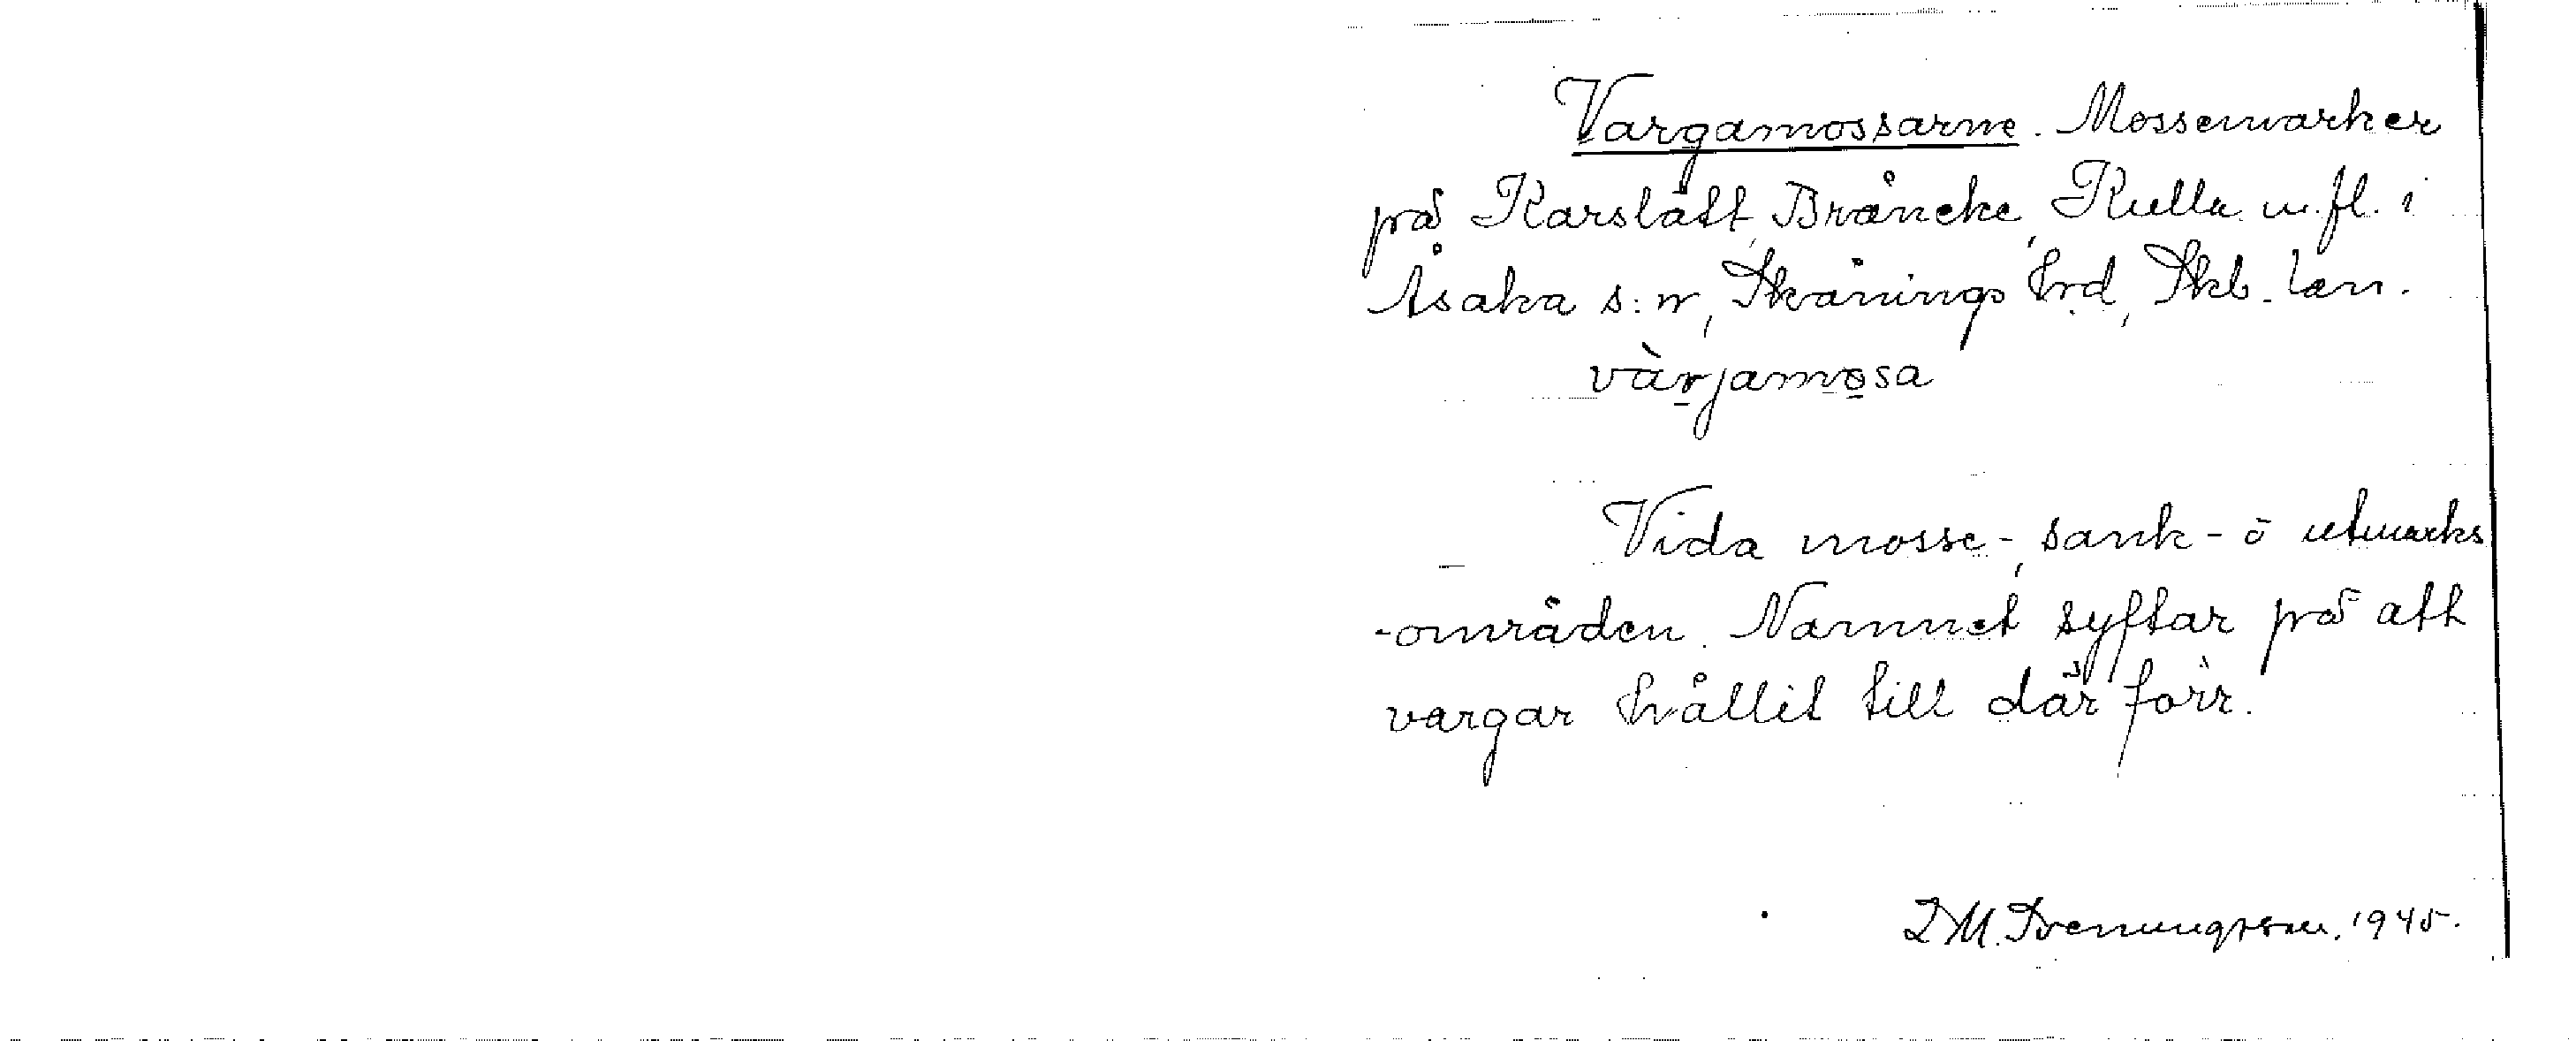 Vargamossarne. Mossemarker
på Karslätt, Bråneke, Kulla m.fl. i
Åsaka s:n, Skånings hrd, Skb. län.
vàrjamosa
Vida mosse-, sank- ō utmarks
-områden. Namnet syftar på att
vargar hållit till där förr.
1945.